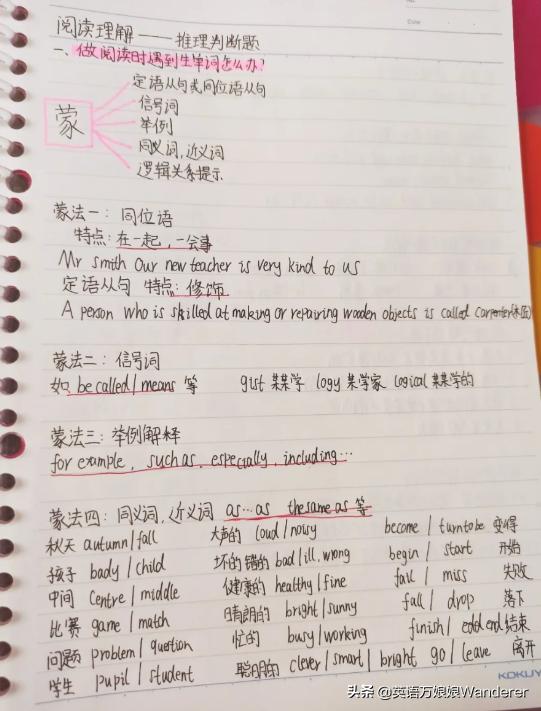 阅读理解——推理判断题
一、做阅读时遇到生单词怎么办?
定语从句或同位语从句
信号词
蒙
举例
同义词,近义词
逻辑关系提示
蒙法一:同位语
特点:在一起,一会事
Mr smith Our new teacher is very kind to us
定语从句 特点:修饰
A person who is skilled at making or repairing wooden objects is called carpenter(木匠)
蒙法二:信号词
如 be called/means 等 gist 某某学 logy 某学家 logical 某某学的
蒙法三:举例解释
for example, such as, especially, including…
蒙法四:同义词,近义词 as…as the same as 等
秋天 autumn/fall 大声的 loud/noisy become/turn to be 变得
孩子 bady/child 坏的错的 bad/ill, wrong begin/start 开始
中间 centre/middle 健康的 healthy/fine fail/miss 失败
比赛 game/match 晴朗的 bright/sunny fall/drop 落下
问题 problem/question 忙的 busy/working finish/ end 结束
学生 pupil/student 聪明的 clever/smart/bright go/leave 离开
KOKUYO
头条 @英语万娘娘Wanderer